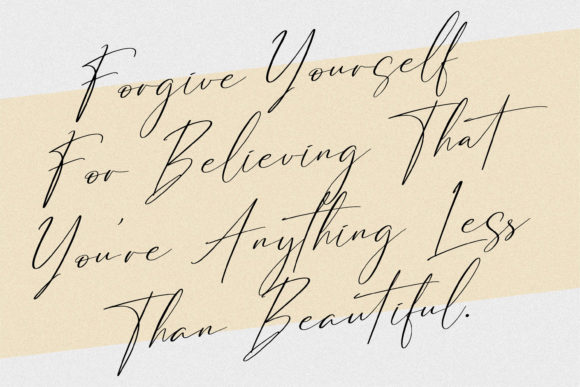 Forgive Yourself
For Believing That
You're Anything Less
Than Beautiful.